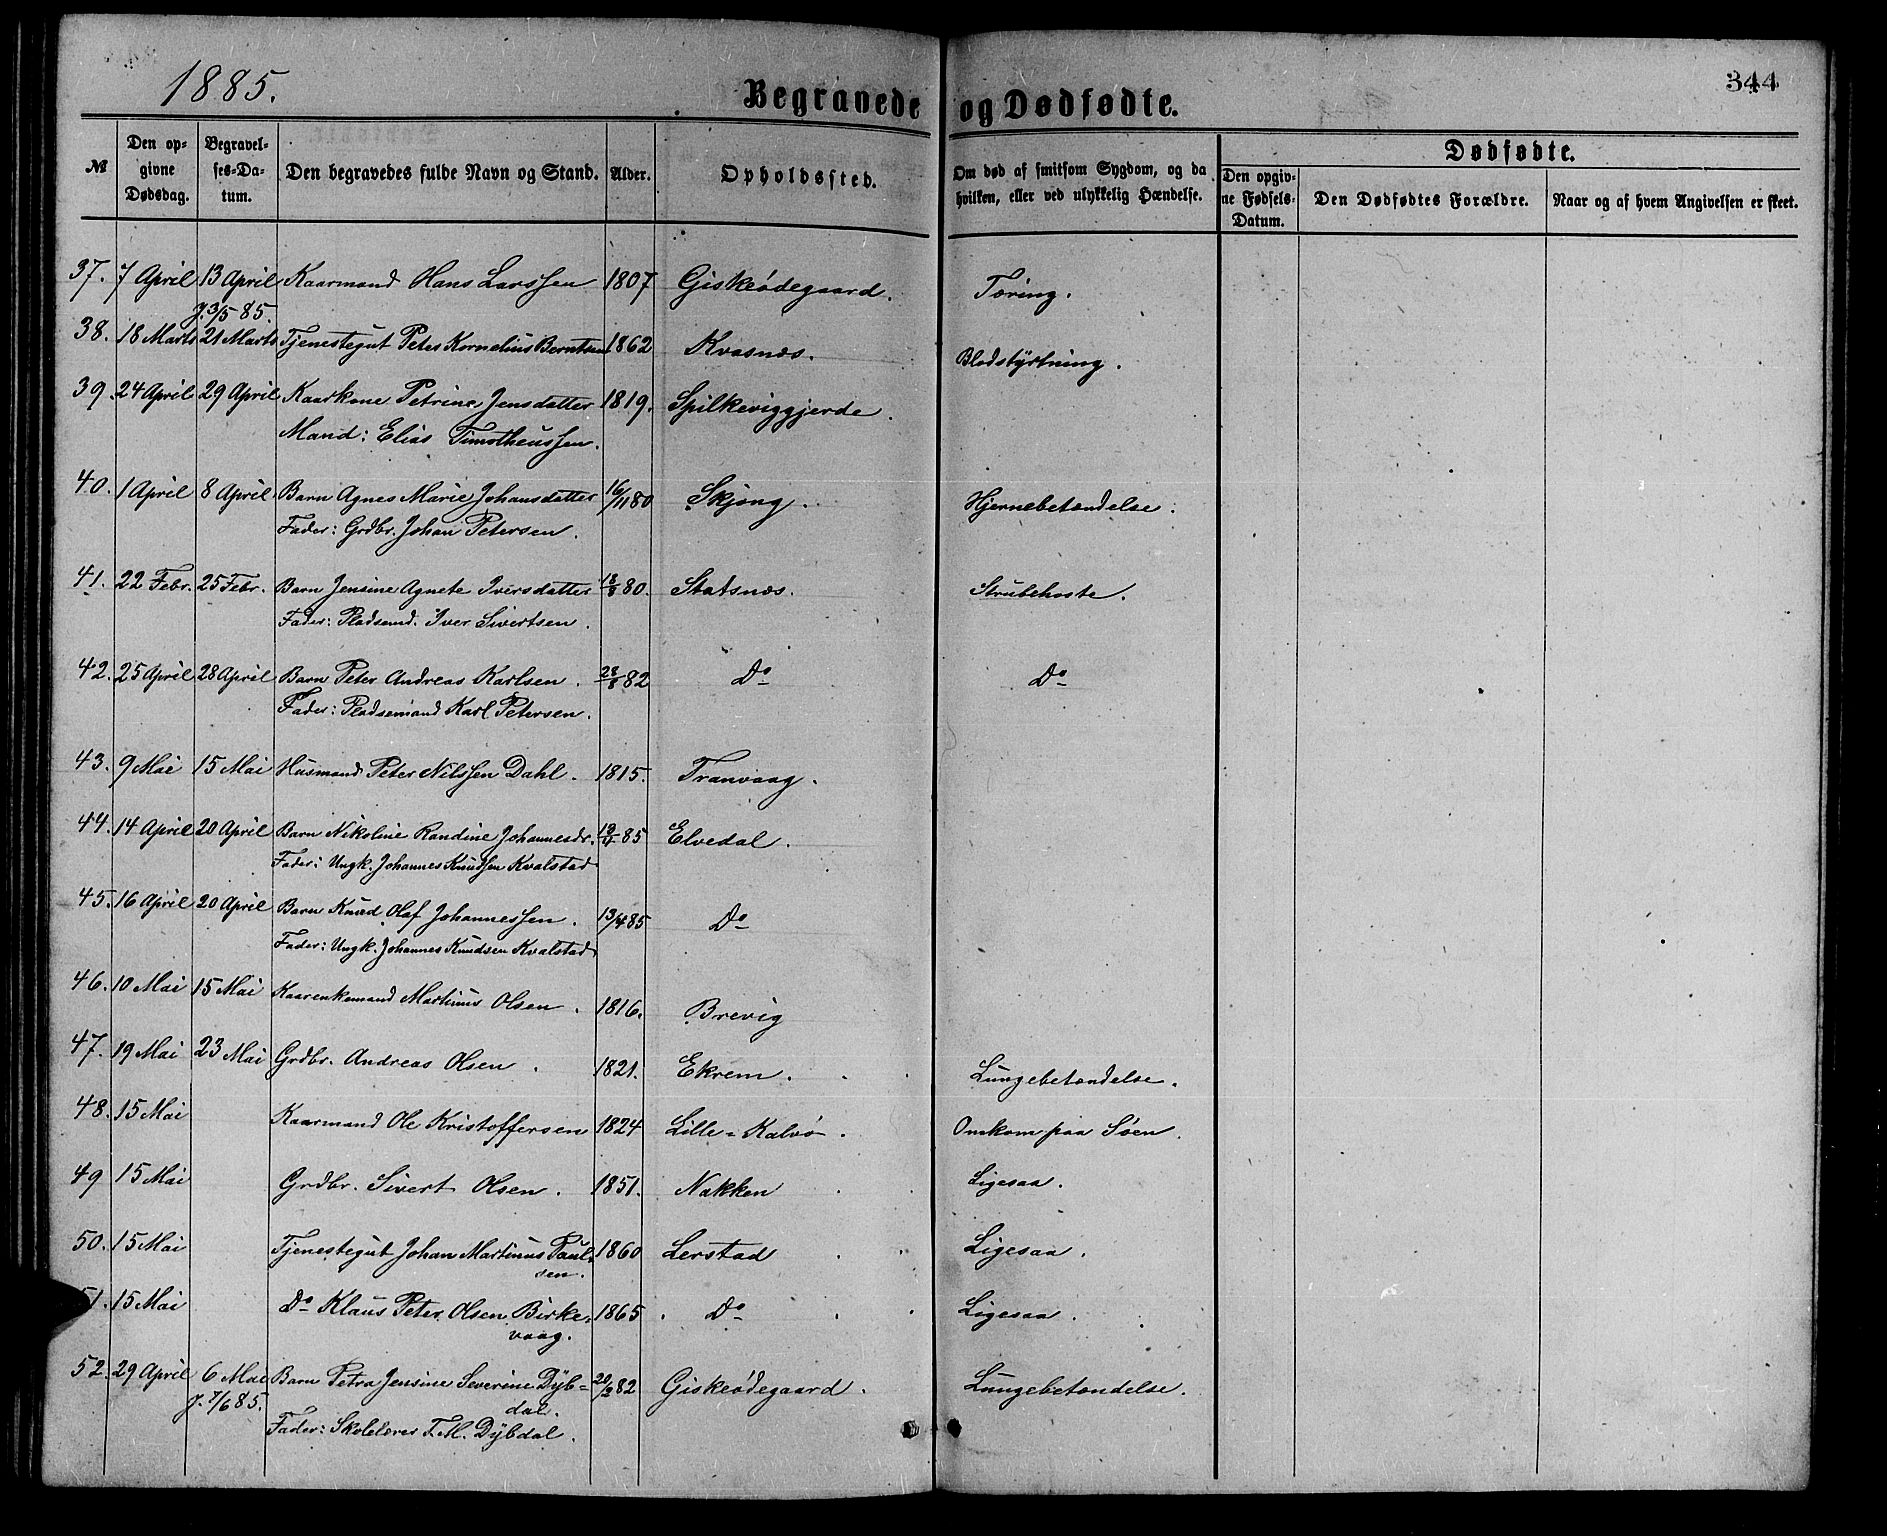 1885.
Begravede og Dødfødte.
344
№
Den opgivne Dødsdag.
Begravelses-Datum.
Den begravedes fulde Navn og Stand.
Alder.
Opholdssted.
Om død af smitsom Sygdom, og da hvilken, eller ved ulykkelig Hændelse.
Dødfødte.
Den opgivne Fødsels-Datum.
Den Dødfødtes Forældre.
Naar og af hvem Angivelsen er skeet.
37. 7 April 13 April Kaarmand Hans Larssen 1807 Giskeødegaard. Tæring.
J. 3/5 85.
38. 18 Marts 21 Marts Tjenestegut Peter Kornelius Berntsen 1862 Kvasnæs. Blodstyrtning.
39. 24 April 29 April Kaarkone Petrine Jensdatter 1819. Spilkeviggjerde.
Mand: Elias Timotheussen.
40. 1 April 8 April Barn Agnes Marie Johansdatter 16/11 80 Skjong. Hjernebetændelse.
Fader: Grdbr. Johan Petersen.
41. 22 Febr. 25 Febr. Barn Jensine Agnete Iversdatter 18/8 80. Statsnæs. Strubehoste.
Fader: Pladsemd. Iver Sivertsen.
42. 25 April 28 April Barn Peter Andreas Karlsen. 28/8 82 Do Do
Fader: Pladsemand Karl Petersen.
43. 9 Mai 15 Mai Husmand Peter Nilssen Dahl. 1815. Tranvaag.
44. 14 April 20 April Barn Nikoline Randine Johannesdr. 13/4 85 Elvedal.
Fader: Ungk. Johannes Knudsen Kvalstad
45. 16 April 20 April Barn Knud Olaf Johannessen. 13/4 85 Do
Fader: Ungk. Johannes Knudsen Kvalstad
46. 10 Mai 15 Mai Kaarenkemand Martinus Olsen. 1816. Brevig
47. 19 Mai 23 Mai Grdbr. Andreas Olsen. 1821. Ekrem. Lungebetændelse.
48. 15 Mai Kaarmand Ole Kristoffersen 1824 Lille-Kalvø. Omkom paa Søen.
49 15 Mai Grdbr. Sivert Olsen. 1851. Nakken Ligesaa.
50. 15 Mai Tjenestegut Johan Martinus Paul- 1860 Lerstad Ligesaa.
sen.
51. 15 Mai Do Klaus Peter Olsen Birke- 1865 Do Ligesaa.
vaag.
52. 29 April 6 Mai Barn Petra Jensine Severine Dÿb- 20/2 82 Giskeødegaard. Lungebetændelse.
J. 7/6 85. dal.
Fader: Skolelærer T. M. Dÿbdal.